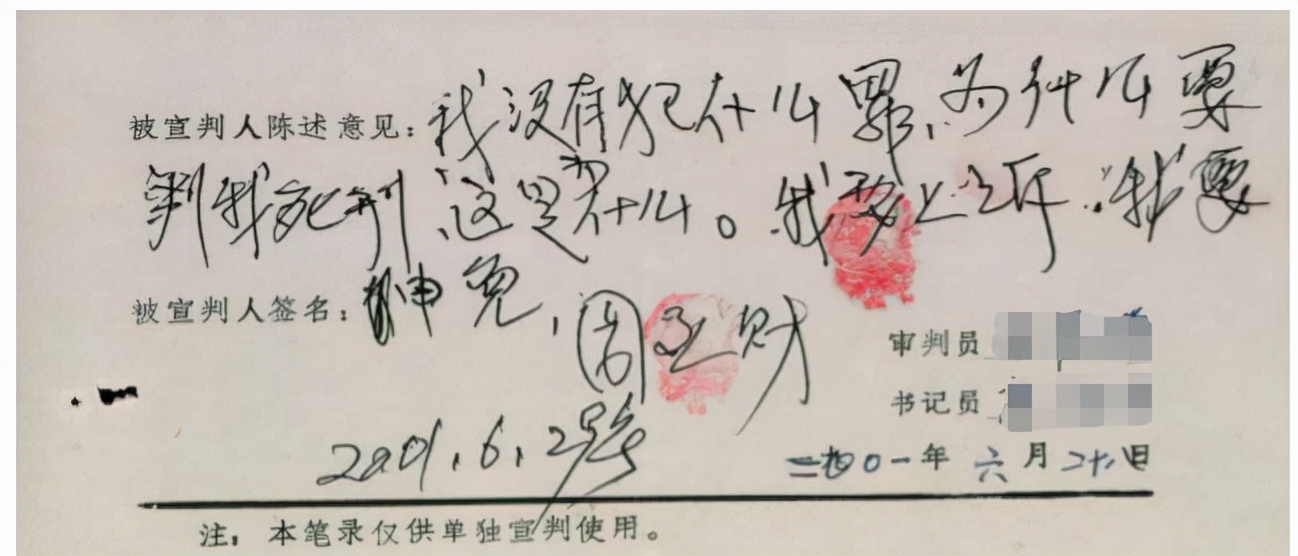 被宣判人陈述意见：我没有犯什么罪，为什么要
判我死刑，这是为什么。我要上诉，我要
被宣判人签名：伸冤，周
财
审判员
书记员
2001.6.2
二〇〇一年六月二十八日
注：本笔录仅供单独宣判使用。